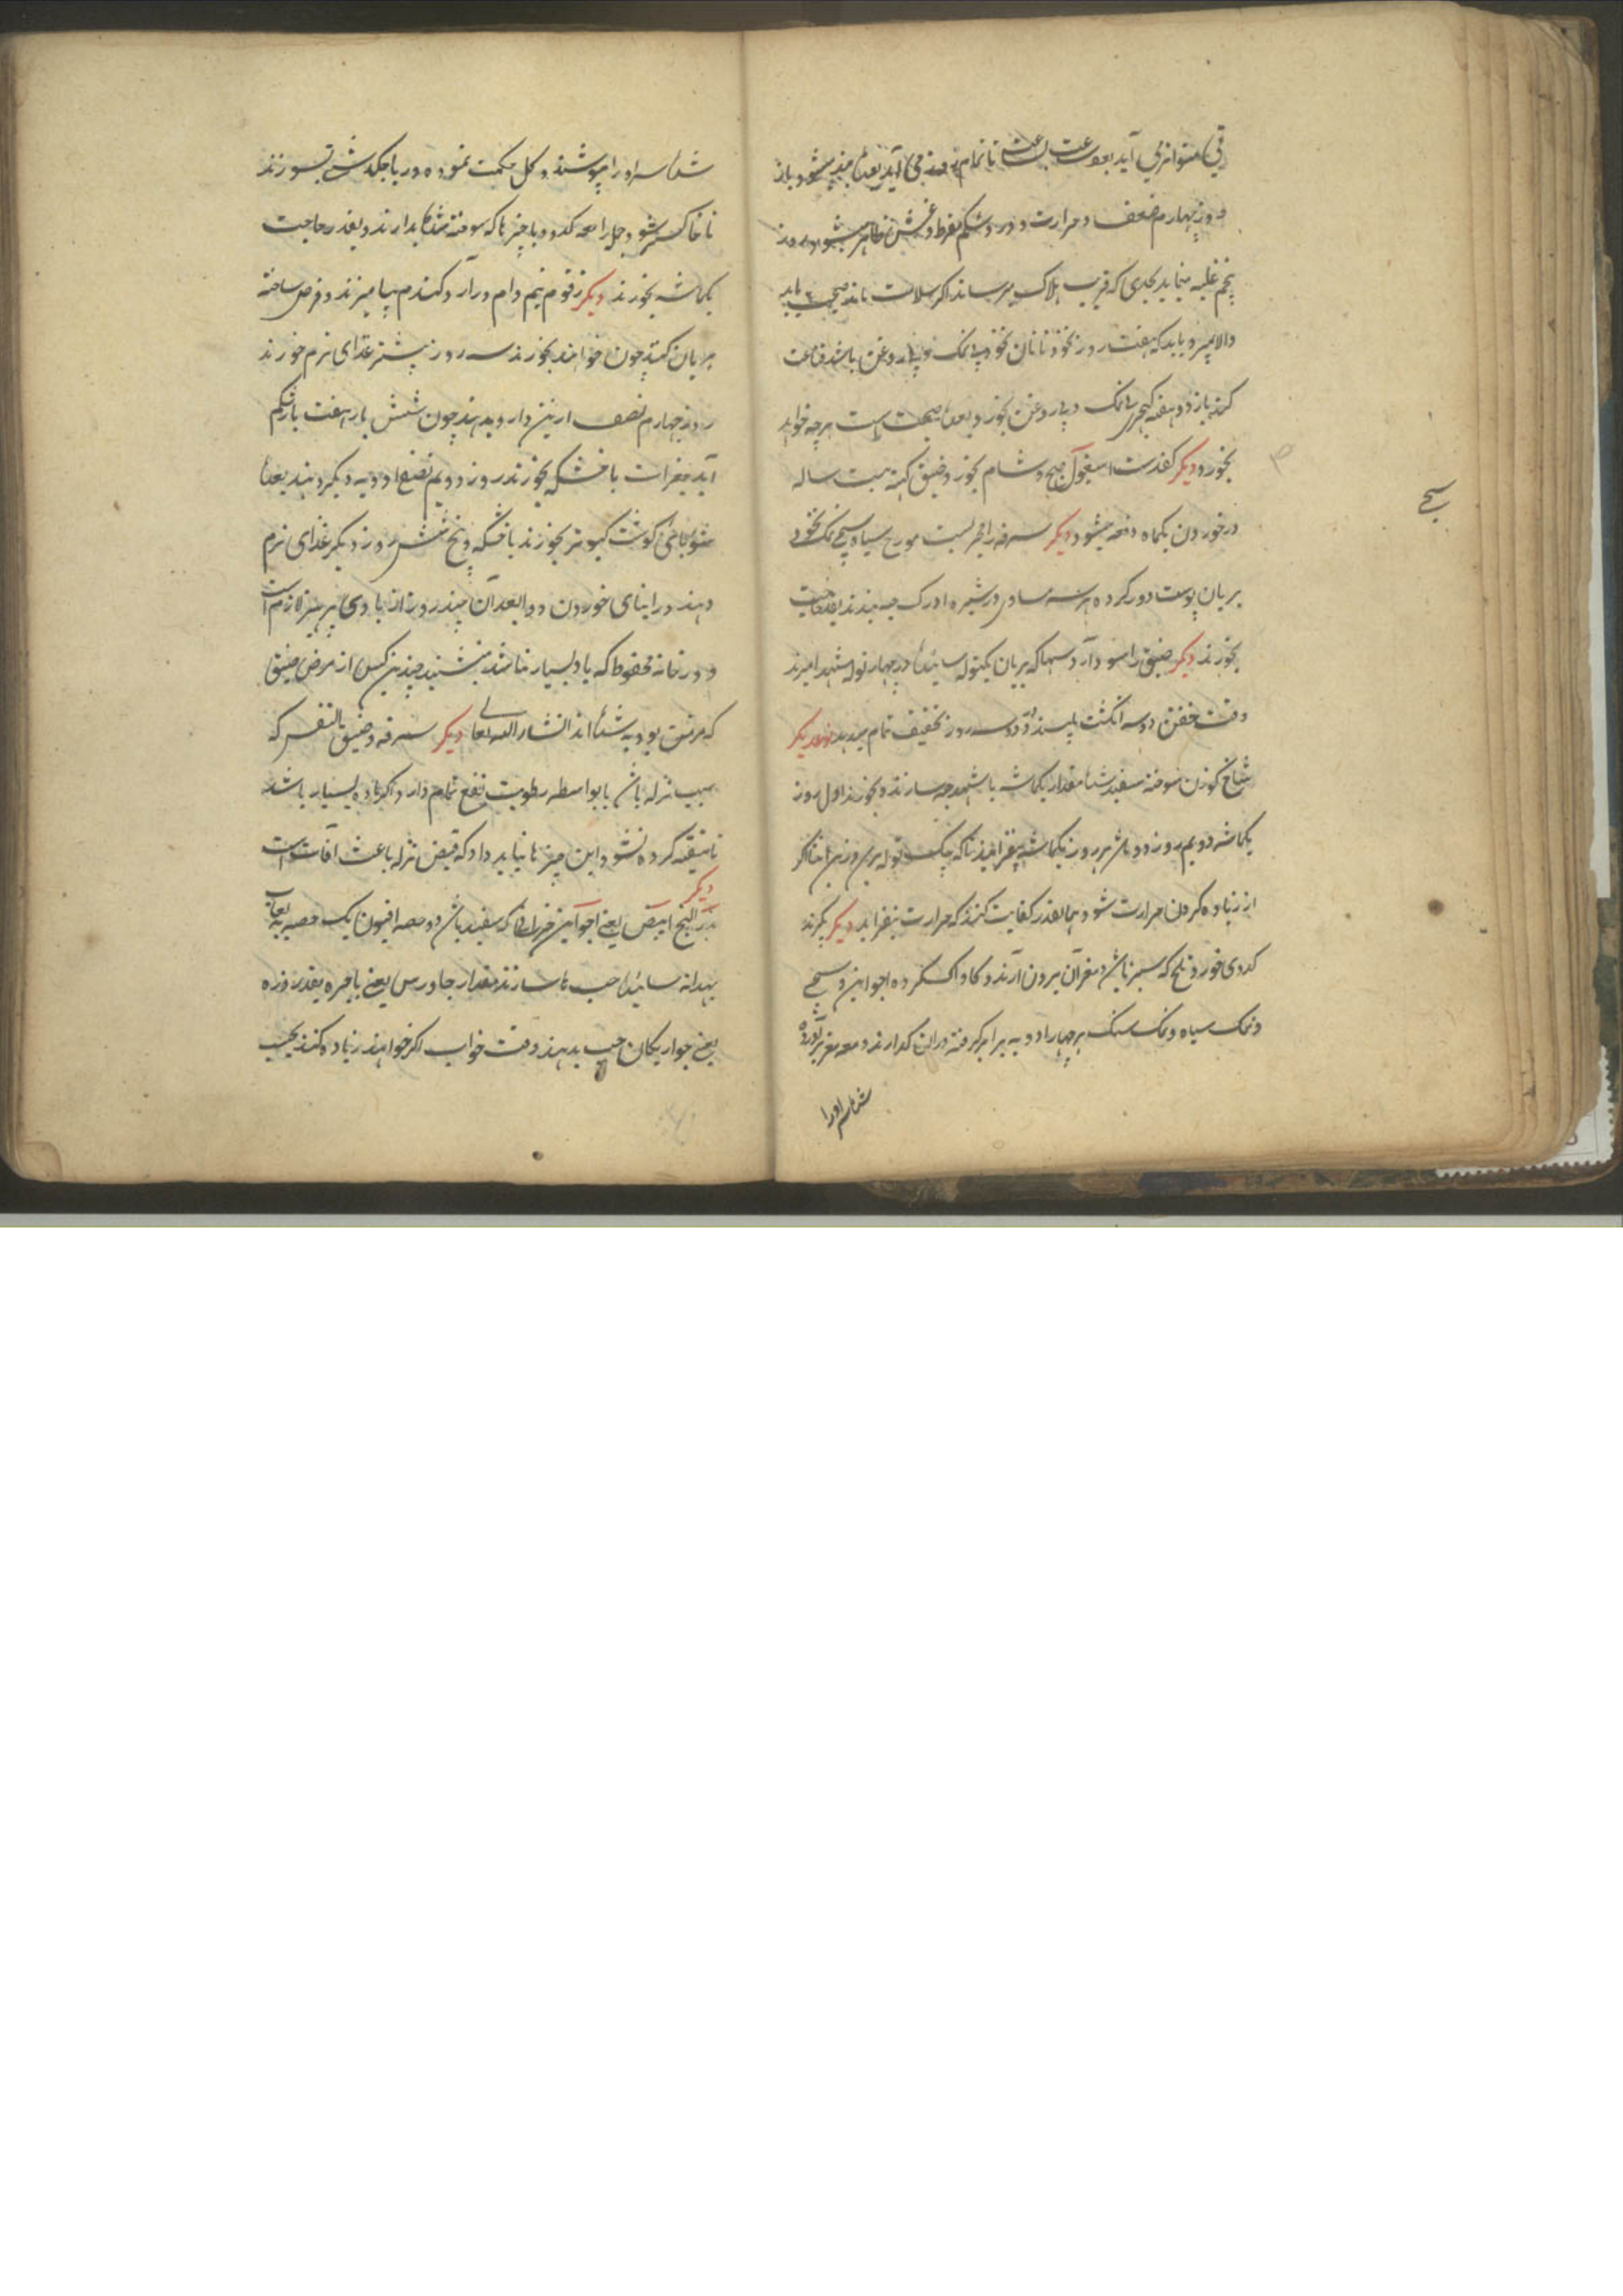 قی متواتر می آید بعد ساعت بساعت تا تمام روز می آید بعده بند میشود باز
روز چهارم ضعف و حرارت و درد شکم مفرط و غش ظاهر میشود روز
پنجم غلبه مینماید بحدی که قریب هلاک میرساند اگر سلامت ماند صحت یابد
والا بمیرد باید که هفت روز نخود نان نخود بی نمک و بی روغن باشد قناعت
کند باز دو هفته کهچری بی نمک و بی روغن بخورد بعده صحت است هرچه خواهد
بخورد دیگر کفدست اسپغول صبح و شام بخورد ضیق کهنه بیست ساله
در خوردن یکماه دفعه میشود دیگر سرفه را مجرب است مورچ سیاه سجی نمک نخود
بریان پوست دور کرده هر سه مساوی در شیره ادرک حب بندند بقدر حاجت
بخورند دیگر ضیق را سود دارد سهاکه بریان یکتوله سائیده در چهار توله شهد آمیزند
وقت خفتن دو سه انگشت بلیسند در دو سه روز تخفیف تمام میدهد دیگر
شاخ گوزن سوخته سفید شده مقدار یکماشه با شهد حب سازند و بخورند اول روز
یکماشه دویم روز دو ماشه هر روز یکماشه بیفزایند تا که بیک توله برسد اگر
از زیاده کردن حرارت شود بهمانقدر کفایت کنند که حرارت نیفزاید دیگر بگیرند
کدوی خورد تلخ که سبز باشد مغز آن بیرون آرند و کاواک کرده اجواین و سجی
و نمک سیاه و نمک سنگ هر چهار ادویه برابر گرفته در آن گذارند و معه مغز برآورده
شناسه او را
سجی
شناسه او را بپوشند و گل حکمت نموده در پاچک دشتی بسوزند
تا خاکستر شود و جمله را معه کدو و با چیزها که سوخته شد نگاه بدارند و بقدر حاجت
یکماشه بخورند دیگر زقوم نیم دام در آرد گندم بیامیزند و قرص ساخته
بریان کنند چون خواهند بخورند سه روز پیشتر غذای نرم خورند
روز چهارم نصف ازین دارو بدهند چون شش بار هفت بار شکم
آید جغرات با خشکه بخورند روز دویم نصف ادویه دیگر دهند بعده
شوربای گوشت کبوتر بخورند با خشکه و پنج شش روز دیگر غذای نرم
دهند در اثنای خوردن دوا و بعد آن چند روز از بادی پرهیز لازم است
و در خانه محفوظ که باد بسیار نباشد بنشینند چندین کس از مرض ضیق
که مزمن بود به شده اند انشاء الله تعالی دیگر سرفه و ضیق النفس که
بسبب نزله باشد یا بواسطه رطوبت نفع تمام دارد اگر ماده بسیار باشد
تا تنقیه کرده نشود این چیزها نباید داد که قبض نزله باعث آفات است
دیگر
بزر البنج ابیض یعنی اجواین خراسانی که سفید باشد دو حصه افیون یک حصه به لعاب
بهدانه سائیده حب ها سازند مقدار جاورس یعنی باجره بقدر ذره
یعنی جوار یکان حب بدهند وقت خواب اگر خواهند زیاده کنند بحسب